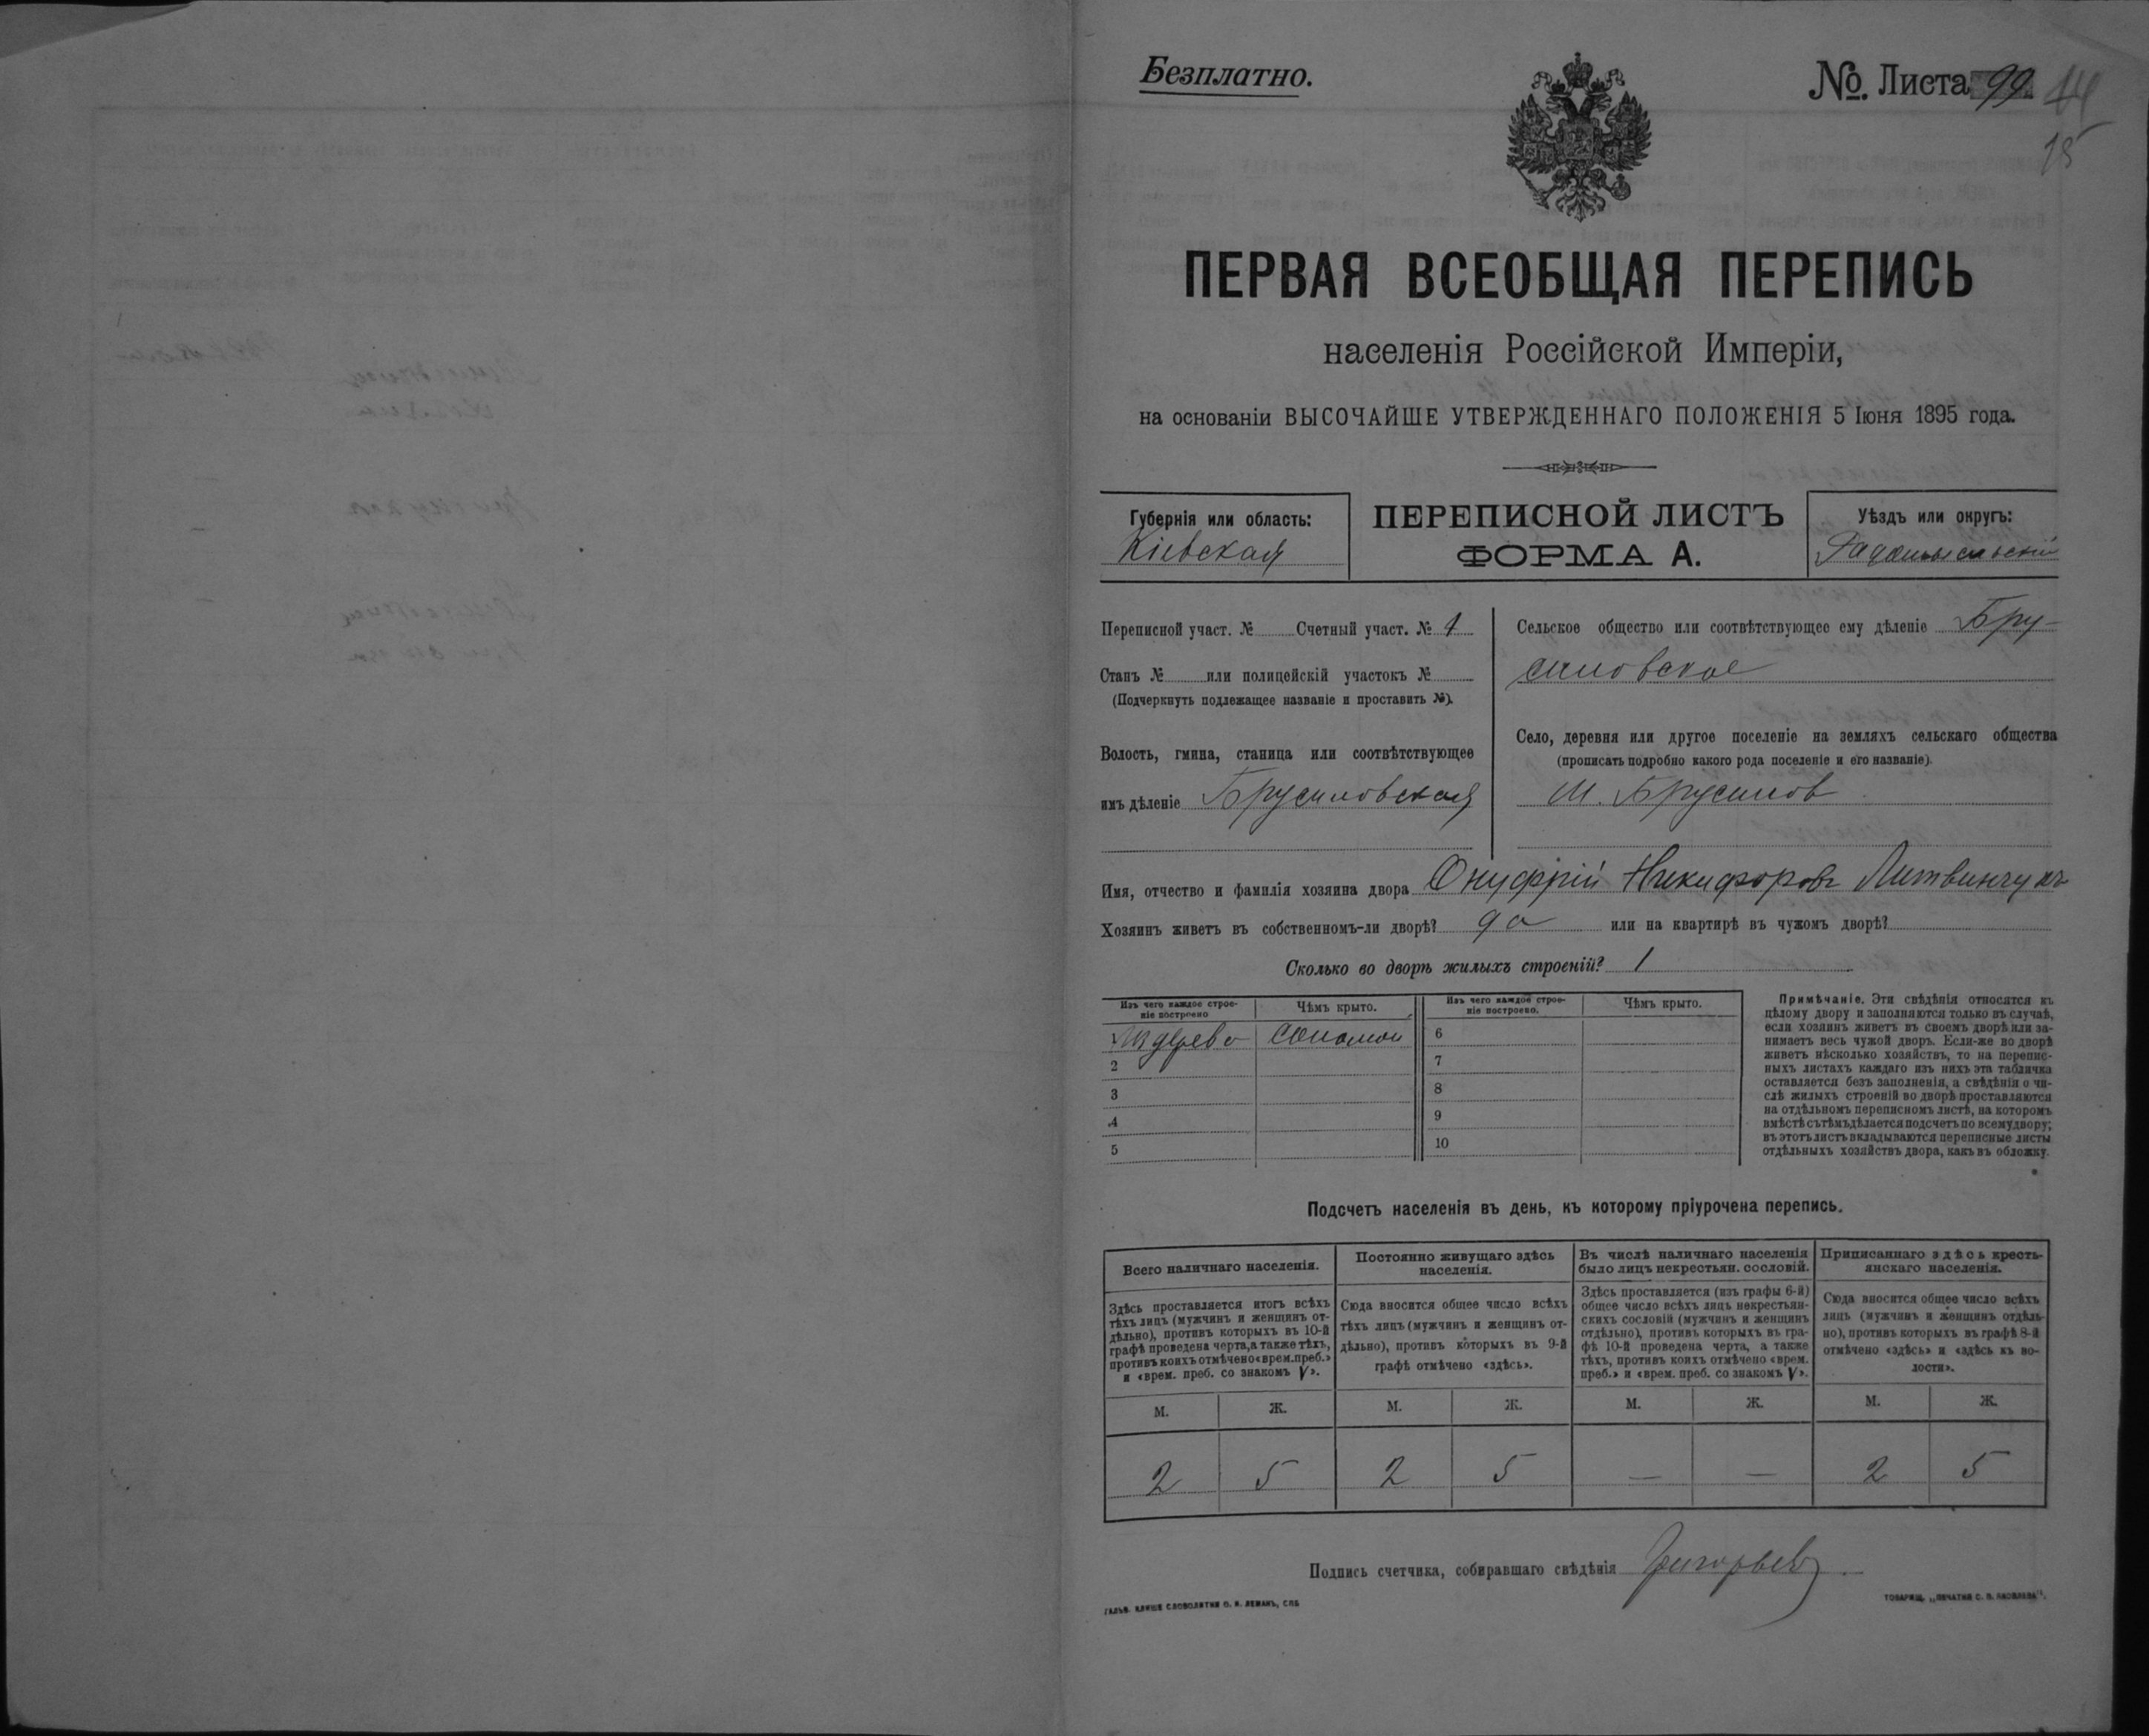 Безплатно.
№. Листа 99. 44
15
ПЕРВАЯ ВСЕОБЩАЯ ПЕРЕПИСЬ
населенія Россійской Имперіи,
на основаніи ВЫСОЧАЙШЕ УТВЕРЖДЕННАГО ПОЛОЖЕНІЯ 5 Іюня 1895 года.
Губернія или область:
Кіевская
ПЕРЕПИСНОЙ ЛИСТЪ
ФОРМА А.
Уѣздъ или округъ:
Радомысльскій
Переписной участ. № Счетный участ. № 1
Станъ № или полицейскій участокъ №
(Подчеркнуть подлежащее названіе и проставить №).
Волость, гмина, станица или соотвѣтствующее
имъ дѣленіе Брусиловская
Сельское общество или соотвѣтствующее ему дѣленіе Бру-
силовское
Село, деревня или другое поселеніе на земляхъ сельскаго общества
(прописать подробно какого рода поселеніе и его названіе).
М. Брусилов
Имя, отчество и фамилія хозяина двора Онуфрій Никифоровъ Литвинчукъ
Хозяинъ живетъ въ собственномъ-ли дворѣ? да или на квартирѣ въ чужомъ дворѣ?
Сколько во дворѣ жилыхъ строеній? 1
Изъ чего каждое строе-
ніе построено
Чѣмъ крыто.
Изъ чего каждое строе-
ніе построено.
Чѣмъ крыто.
дерево соломой 6
2 7
3 8
4 9
5 10
Примѣчаніе. Эти свѣдѣнія относятся къ
цѣлому двору и заполняются только въ случаѣ,
если хозяинъ живетъ въ своемъ дворѣ или за-
нимаетъ весь чужой дворъ. Если-же во дворѣ
живетъ нѣсколько хозяйствъ, то на перепис-
ныхъ листахъ каждаго изъ нихъ эта табличка
оставляется безъ заполненія, а свѣдѣнія о чи-
слѣ жилыхъ строеній во дворѣ проставляются
на отдѣльномъ переписномъ листѣ, на которомъ
вмѣстѣ съ тѣмъ дѣлается подсчетъ по всему двору;
въ этотъ листъ вкладываются переписные листы
отдѣльныхъ хозяйствъ двора, какъ въ обложку.
Подсчетъ населенія въ день, къ которому пріурочена перепись.
Всего наличнаго населенія.
Здѣсь проставляется итогъ всѣхъ
тѣхъ лицъ (мужчинъ и женщинъ от-
дѣльно), противъ которыхъ въ 10-й
графѣ проведена черта, а также тѣхъ,
противъ коихъ отмѣчено «врем. преб.»
и «врем. преб. со знакомъ V».
Постоянно живущаго здѣсь
населенія.
Сюда вносится общее число всѣхъ
тѣхъ лицъ (мужчинъ и женщинъ от-
дѣльно), противъ которыхъ въ 9-й
графѣ отмѣчено «здѣсь».
Въ числѣ наличнаго населенія
было лицъ некрестьян. сословій.
Здѣсь проставляется (изъ графы 6-й)
общее число всѣхъ лицъ некрестьян-
скихъ сословій (мужчинъ и женщинъ
отдѣльно), противъ которыхъ въ гра-
фѣ 10-й проведена черта, а также
тѣхъ, противъ коихъ отмѣчено «врем.
преб.» и «врем. преб. со знакомъ V».
Приписаннаго здѣсь кресть-
янскаго населенія.
Сюда вносится общее число всѣхъ
лицъ (мужчинъ и женщинъ отдѣль-
но), противъ которыхъ въ графѣ 8-й
отмѣчено «здѣсь» и «здѣсь въ во-
лости».
М. Ж. М. Ж. М. Ж. М. Ж.
2 5 2 5 — — 2 5
Подпись счетчика, собиравшаго свѣдѣнія Григорьев
ГАЛЬВ. КЛИШЕ СЛОВОЛИТНИ О. И. ЛЕМАНЪ, СПБ
ТОВАРИЩ. „ПЕЧАТНЯ С. П. ЯКОВЛЕВА“.